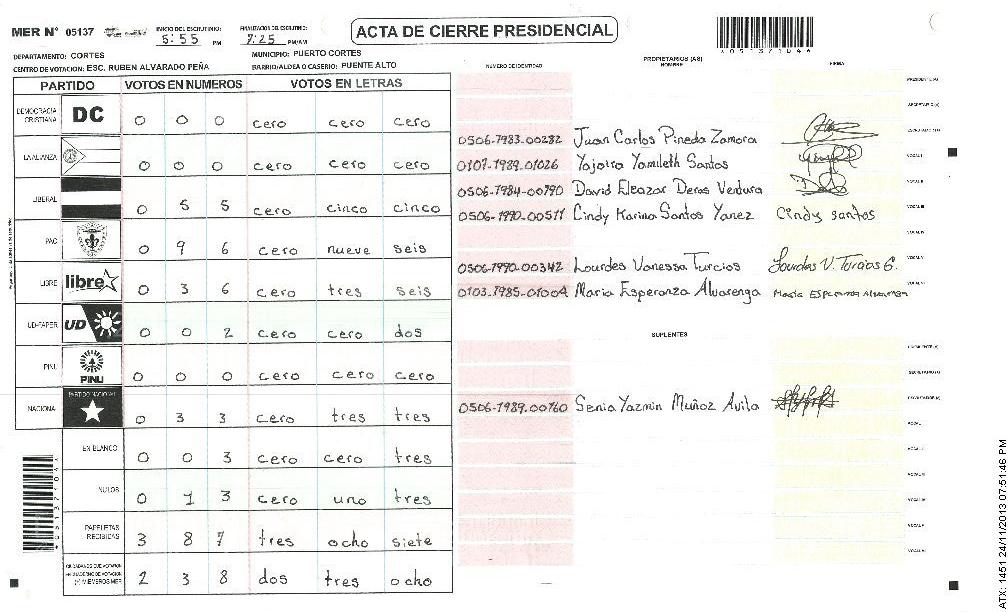 MER N° 05137 INICIO DEL ESCRUTINIO: 5:55 PM FINALIZACION DEL ESCRUTINIO: 7:25 PM/AM
ACTA DE CIERRE PRESIDENCIAL
DEPARTAMENTO: CORTES MUNICIPIO: PUERTO CORTES
CENTRO DE VOTACION: ESC. RUBEN ALVARADO PEÑA BARRIO/ALDEA O CASERIO: PUENTE ALTO
PARTIDO VOTOS EN NUMEROS VOTOS EN LETRAS
DEMOCRACIA CRISTIANA DC 0 0 0 cero cero cero
LA ALIANZA 0 0 0 cero cero cero
LIBERAL 0 5 5 cero cinco cinco
PAC 0 9 6 cero nueve seis
LIBRE libre 0 3 6 cero tres seis
UD-FAPER UD 0 0 2 cero cero dos
PINU PINU 0 0 0 cero cero cero
NACIONAL PARTIDO NACIONAL 0 3 3 cero tres tres
EN BLANCO 0 0 3 cero cero tres
NULOS 0 1 3 cero uno tres
PAPELETAS RECIBIDAS 3 8 7 tres ocho siete
CIUDADANOS QUE VOTARON EN CUADERNO DE VOTACION (+) MIEMBROS MER 2 3 8 dos tres ocho
PROPIETARIOS (AS)
NUMERO DE IDENTIDAD NOMBRE FIRMA
PRESIDENTE (A)
SECRETARIO (A)
0506-1983-00282 Juan Carlos Pineda Zamora ESCRUTADOR (A)
0107-1989-01026 Yajaira Yamileth Santos VOCAL I
0506-1984-00790 David Eleazar Deras Ventura VOCAL II
0506-1990-00511 Cindy Karina Santos Yanez Cindy santos VOCAL III
VOCAL IV
0506-1990-00342 Lourdes Vanessa Turcios Lourdes V. Turcios G. VOCAL V
0103-1985-01004 Maria Esperanza Alvarenga Maria Esperanza Alvarenga VOCAL VI
SUPLENTES
PRESIDENTE (A)
SECRETARIO (A)
0506-1989-00760 Senia Yazmin Muñoz Avila ESCRUTADOR (A)
VOCAL I
VOCAL II
VOCAL III
VOCAL IV
VOCAL V
VOCAL VI
ATX: 1451 24/11/2013 07:51:46 PM